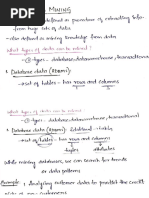 MINING
defined as procedure of extracting info-
from huge sets of data
-also defined as mining knowledge from data
What types of data can be mined?
3-types- database, datawarehouse, transactional
1. Database data (RDBMS)
-set of tables - has rows and columns
What types of data can be mined?
3-types- database, datawarehouse, transactional
1. Database data (RDBMS) Relational - tables
-set of tables - has rows and columns
tuples attributes
While mining databases, we can search for trends
or data patterns
Example: 1. Analysing customer data to predict the credit